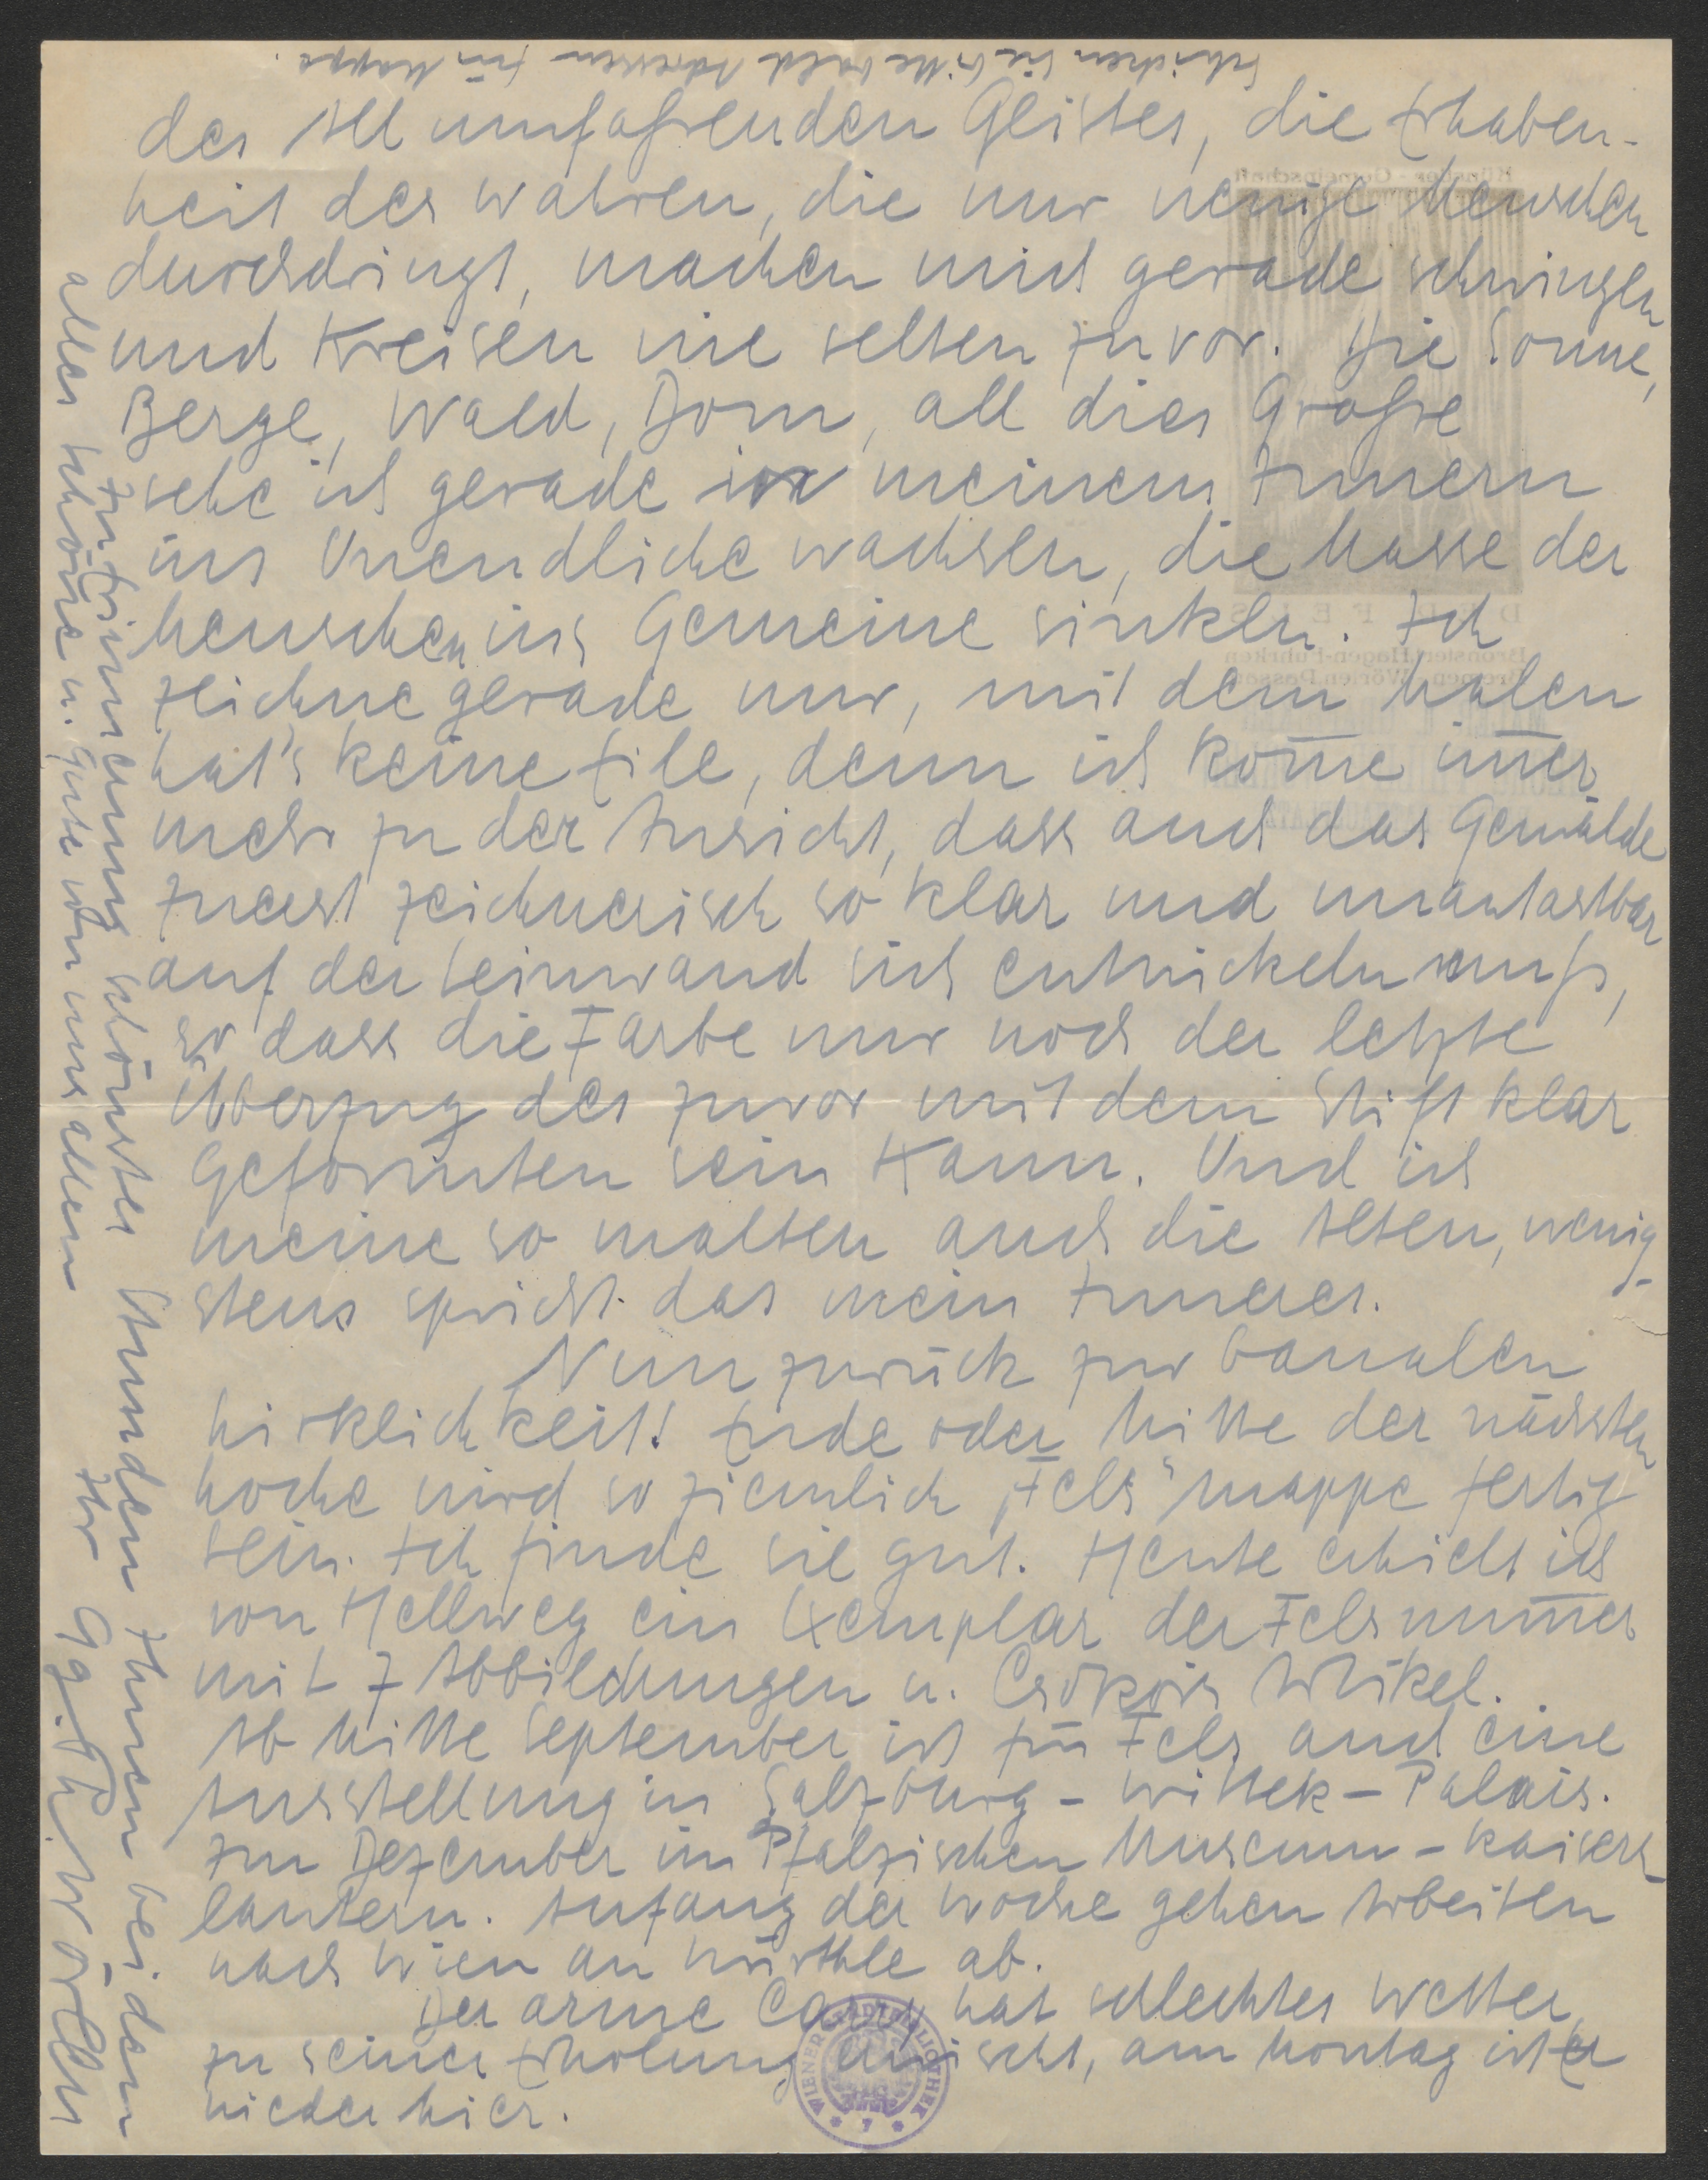 des All umfaßenden Geistes, die Erhaben-
heit des Wahren, die nur wenige Menschen
durchdringt, machen mich gerade schwingen
und Kreisen wie selten zuvor. Die Sonne,
Berge, Wald, Dom, all dies Große
sehe ich gerade in meinem Innern
ins Unendliche wachsen, die Masse der
Menschen ins Gemeine sinken. Ich
zeichne gerade nur, mit dem Malen
hat's keine Eile, denn ich kom̅e im̅er
mehr zu der Ansicht, dass auch das Gemälde
zuerst zeichnerisch so klar und unantastbar
auf der Leinwand sich entwickeln muß,
so dass die Farbe nur noch der letzte
Überzug des zuvor mit dem Stift klar
Geformten sein Kann. Und ich
meine so malten auch die Alten, wenig-
stens spricht das mein Inneres.
Nun zurück zur banalen
Wirklichkeit! Ende oder Mitte der nächsten
Woche wird so ziemlich „Fels“mappe fertig
sein. Ich finde sie gut. Heute erhielt ich
von Hellweg ein Exemplar der Felsnum̅er
mit 7 Abbildungen u. Csokors Artikel.
Ab Mitte September ist für Fels auch eine
Ausstellung in Salzburg - Wittek - Palais.
Im Dezember im Pfalzischen Museum - Kaisers-
lautern. Anfang der Woche gehen Arbeiten
nach Wien an Würthle ab.
Der arme Carry hat schlechtes Wetter
zu seiner Erholung erwischt, am Montag ist er
wieder hier.
In Erinnerung schönster Stunden Ihnen beiden
alles Schöne u. Gute von uns allen
Ihr Gg. Ph. Wörlen
Schicken Sie bitte bald Adressen für Mappe.
Künstler-Gemeinschaft
DER FELS
WIENER STADTBIBLIOTHEK